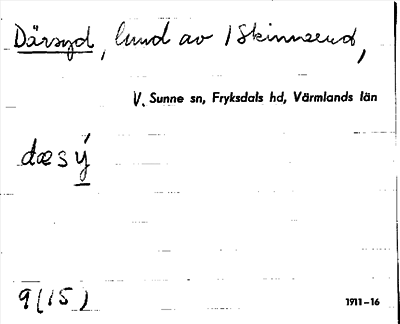 Därsyd, lund av /Skinnerud,
V. Sunne sn, Fryksdals hd, Värmlands län
dæsý
9(15)
1911–16